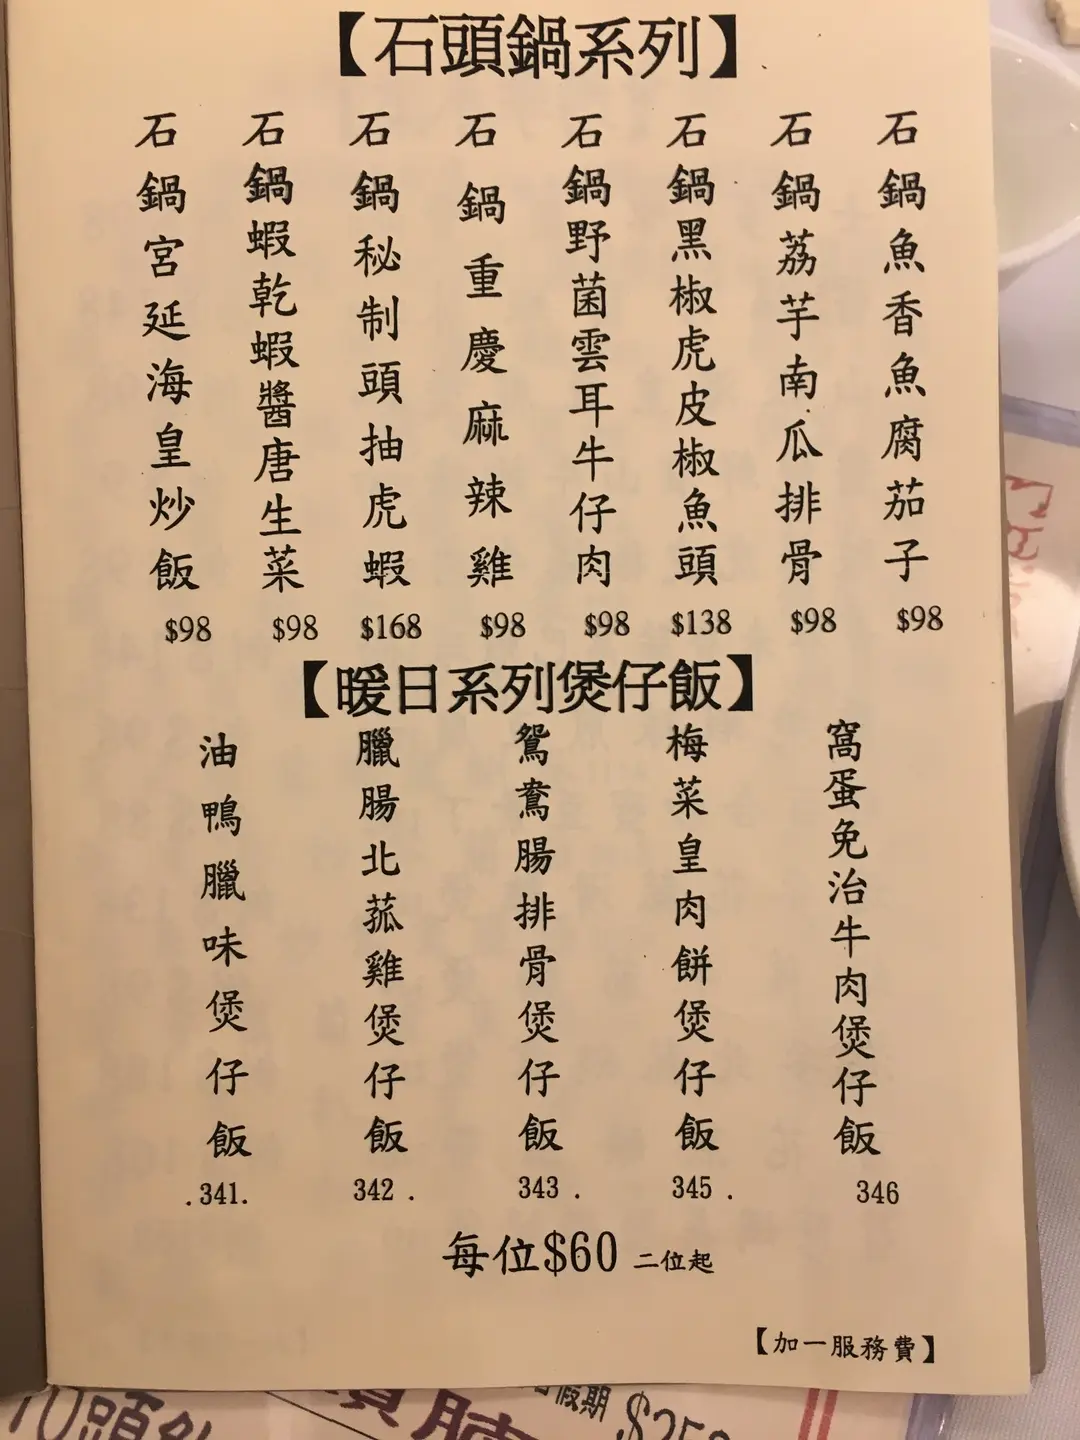 【石頭鍋系列】
石鍋魚香魚腐茄子
$98
石鍋荔芋南瓜排骨
$98
石鍋黑椒虎皮椒魚頭
$138
石鍋野菌雲耳牛仔肉
$98
石鍋重慶麻辣雞
$98
石鍋秘制頭抽虎蝦
$168
石鍋蝦乾蝦醬唐生菜
$98
石鍋宮延海皇炒飯
$98
【暖日系列煲仔飯】
窩蛋免治牛肉煲仔飯
346
梅菜皇肉餅煲仔飯
345 .
鴛鴦腸排骨煲仔飯
343 .
臘腸北菰雞煲仔飯
342 .
油鴨臘味煲仔飯
. 341.
每位$60 二位起
【加一服務費】
假期